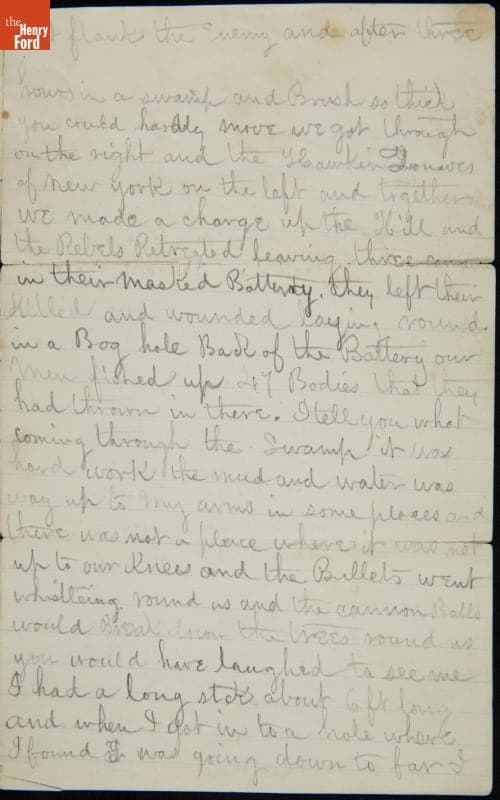 the
Henry
Ford
flank the Enemy and after three
hours in a swamp and Brush so thick
you could hardly move we got through
on the right and the Hawkin Zouaves
of New York on the left and together
we made a charge up the Hill and
the Rebels Retreated leaving three
in their masked Battery. they left their
Killed and wounded laying round.
in a Bog hole Back of the Battery our
men fished up 47 Bodies that they
had thrown in there. I tell you what
coming through the Swamp it was
hard work the mud and water was
way up to my arms in some places and
there was not a place where it was not
up to our Knees and the Bullets went
whistleing round us and the cannon Balls
would Break down the trees round us
you would have laughed to see me
I had a long stick about 6 ft long
and when I got in to a hole where
I found I was going down to far I